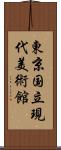 東京国立現
代美術館